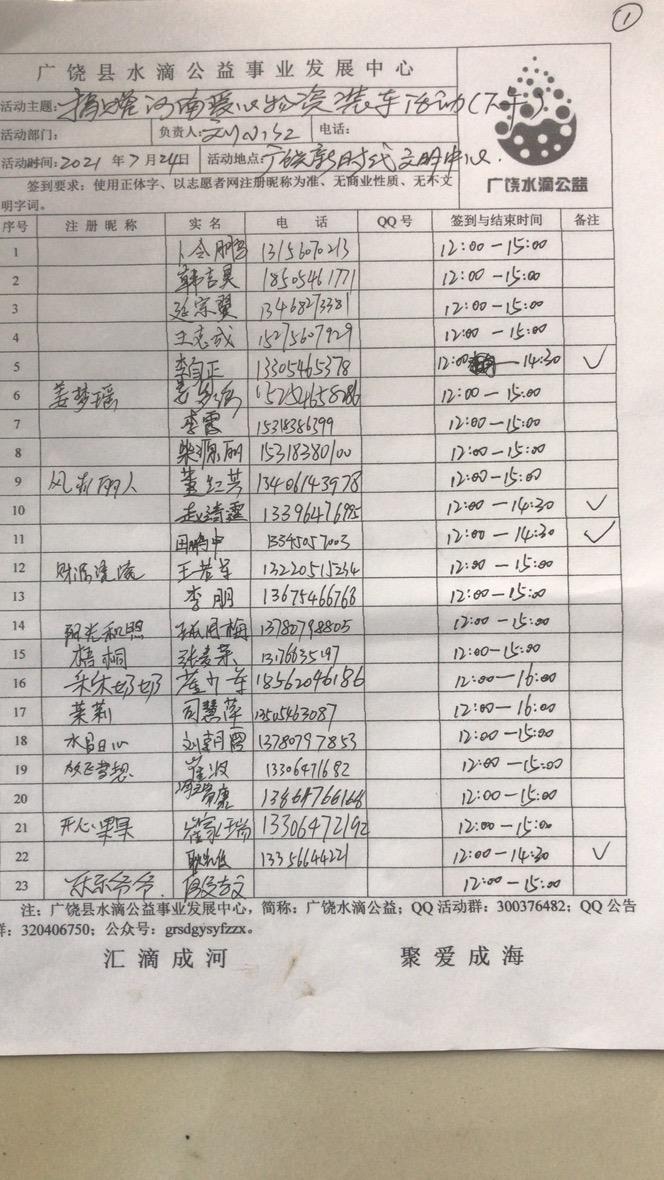 ①
广饶县水滴公益事业发展中心
活动主题：捐赠河南爱心物资装车活动(下午)
活动部门： 负责人： 电话：
活动时间：2021 年 7 月 24日 活动地点：广饶新时代文明中心.
签到要求：使用正体字、以志愿者网注册昵称为准、无商业性质、无不文
明字词。
广饶水滴公益
序号 注册昵称 实名 电话 QQ号 签到与结束时间 备注
1 13156070213 12:00－15:00
2 韩吉昊 18505461771 12:00－15:00
3 张宗翼 13468273381 12:00－15:00
4 王志成 15275607929 12:00－15:00
5 李自正 13305465378 12:00－14:30 ✓
6 姜梦瑶 姜梦瑶 12:00－15:00
7 李霞 15318386399 12:00－15:00
8 柴源丽 15318380100 12:00－15:00
9 董红芸 13406143978 12:00－15:00
10 赵清霞 12:00－14:30 ✓
11 田鹏中 13345057003 12:00－14:30 ✓
12 财源滚滚 王若军 13220515234 12:00－15:00
13 李朋 13675466768 12:00－15:00
14 阳光和煦 13780798805 12:00－15:00
15 梧桐 13176635197 12:00－15:00
16 18562046186 12:00－16:00
17 茉莉 司慧萍 13505463087 12:00－16:00
18 刘朝霞 13780797853 12:00－15:00
19 放飞梦想 崔波 13306471682 12:00－15:00
20 12:00－15:00
21 开心果果 崔家瑞 13306472192 12:00－15:00
22 13356644221 12:00－14:30 ✓
23 乐乐爷爷. 12:00－15:00
注：广饶县水滴公益事业发展中心，简称：广饶水滴公益；QQ 活动群：300376482；QQ 公告
群：320406750；公众号：grsdgysyfzzx。
汇滴成河 聚爱成海